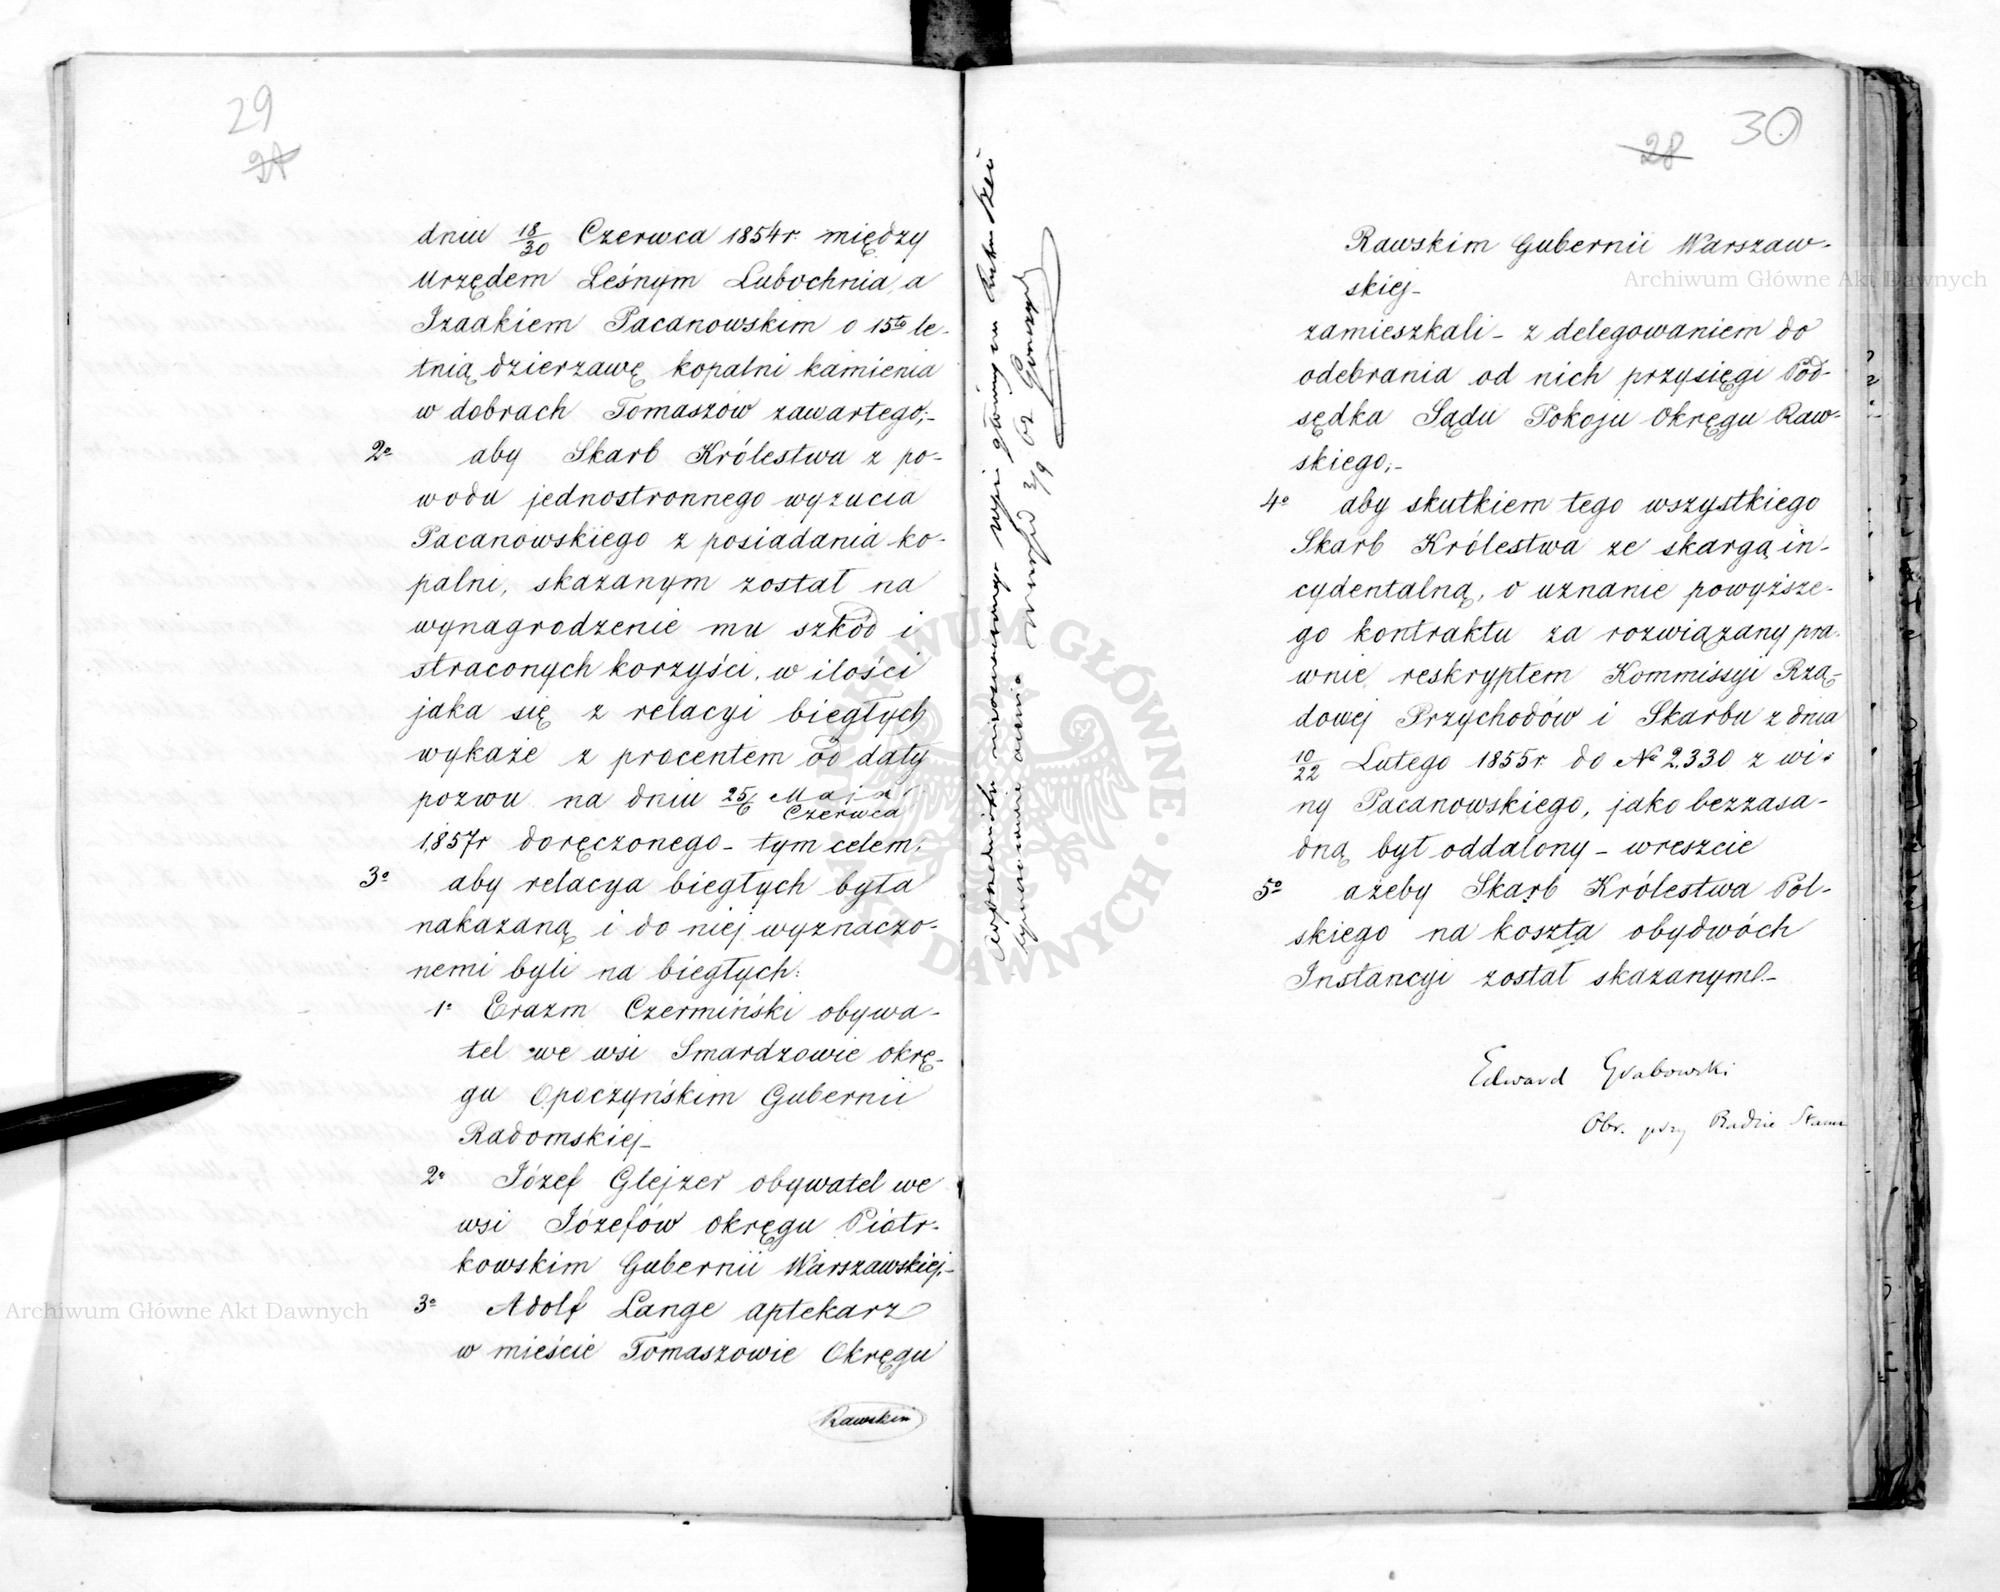 29
27
dniu 18/30 Czerwca 1854r. między
Urzędem Leśnym Lubochnia, a
Izaakiem Pacanowskim o 15to le-
tnią dzierzawę kopalni kamienia
w dobrach Tomaszów zawartego;-
2o aby Skarb Królestwa z po-
wodu jednostronnego wyzucia
Pacanowskiego z posiadania ko-
palni, skazanym został na
wynagrodzenie mu szkód i
straconych korzyści, w ilości
jaka się z relacyi biegłych
wykaże z procentem od daty
pozwu na dniu 25/6 Maja/Czerwca
1857r doręczonego - tym celem;
3o aby relacya biegłych była
nakazaną i do niej wyznaczo-
nemi byli na biegłych:
1o Erazm Czermiński obywa-
tel we wsi Smardzowie okrę-
gu Opoczyńskim Gubernii
Radomskiej -
2o Józef Glejzer obywatel we
wsi Józefów okręgu Piotr-
kowskim Gubernii Warszawskiej -
3o Adolf Lange aptekarz
w mieście Tomaszowie Okręgu
Rawskim
30
28
Rawskim Gubernii Warszaw-
skiej -
zamieszkali - z delegowaniem do
odebrania od nich przysięgi Pod-
sędka Sądu Pokoju Okręgu Raw-
skiego;-
4o aby skutkiem tego wszystkiego
Skarb Królestwa ze skargą in-
cydentalną, o uznanie powyższe-
go kontraktu za rozwiązany pra-
wnie reskryptem Kommissyi Rzą-
dowej Przychodów i Skarbu z dnia
10/22 Lutego 1855r. do No 2,330 z wi-
ny Pacanowskiego, jako bezzasa-
dną był oddalony - wreszcie
5o ażeby Skarb Królestwa Pol-
skiego na koszta obydwóch
Instancyi został skazanym.-
Edward Grabowski
Obr. przy Radzie Stanu
Archiwum Główne Akt Dawnych
Archiwum Główne Akt Dawnych
ARCHIWUM GŁÓWNE AKT DAWNYCH